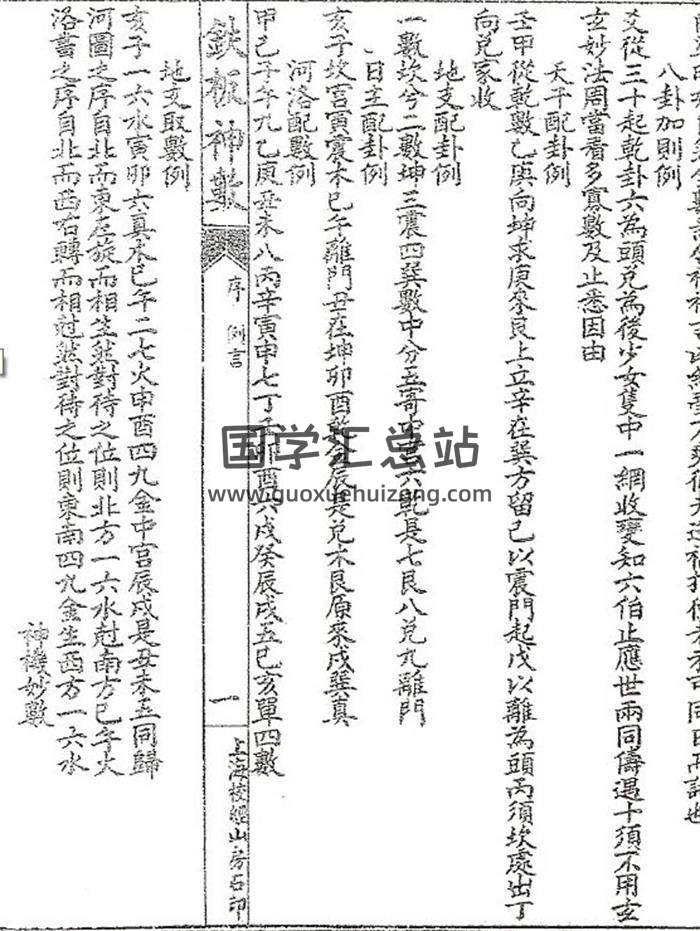 八卦加則例
爻從三十起乾卦六為頭兌為後少女隻中一網收變知六伯止應世兩同儔遇十須不用玄
玄妙法周當看多寡數及止悉因由
天干配卦例
壬甲從乾數乙庚向坤求庚來艮上立辛在巽方留己以震門起戊以離為頭丙須坎處出丁
向兌家收
地支配卦例
一數坎兮二數坤三震四巽數中分五寄中宮六乾是七艮八兌九離門
日主配卦例
亥子坎宮寅震木巳午離門丑在坤卯酉乾金辰是兌木艮原來戌巽真
河洛配數例
甲己子午九乙庚丑未八丙辛寅申七丁壬卯酉六戊癸辰戌五巳亥單四數
鉄板神數
序 例言
一
上海校經山房石印
地支取數例
亥子一六水寅卯六真木巳午二七火申酉四九金中宮辰戌是丑未五同歸
河圖之序自北而東左旋而相生然對待之位則北方一六水尅南方巳午火
洛書之序自北而西右轉而相尅然對待之位則東南四九金生西方一六水
神機妙數
国学汇总站
www.guoxuehuizong.com